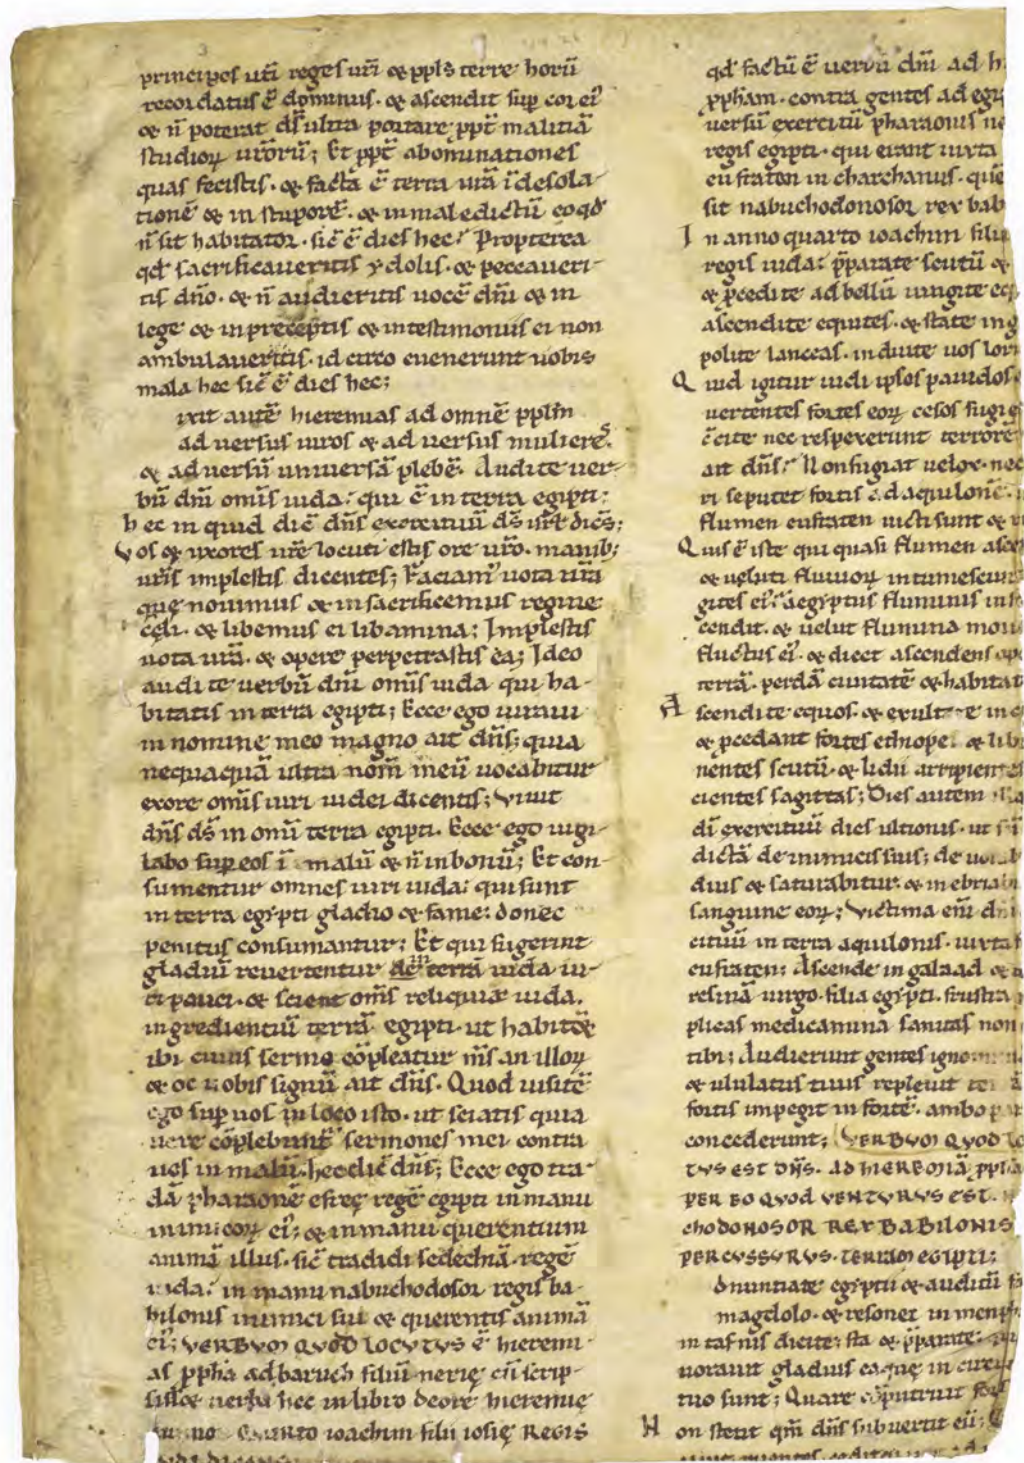 principes uri reges uri & ppls terre horū
recordatus ē dominus. & ascendit sup cor ei
& n̄ poterat ds̄ ultra portare ppt malitiā
studioꝝ urōrū; Et ppt abominationes
quas fecistis. & facta ē terra urā ī desola-
tionē & in stuporē. & in maledictū eo qd
n̄ sit habitator. sic ē dies hec; Propterea
qd sacrificaveritis ydolis. & peccaveri-
tis dn̄o. & n̄ audieritis uocē dn̄i & in
lege & in preceptis & in testimoniis ei non
ambulaveritis. id circo evenerunt uobis
mala hec sic ē dies hec;
ixit autē hieremias ad omnē pplm̄
ad uersus uiros & ad uersus mulieres.
& ad uersū universā plebē. Audite uer-
bū dn̄i omīs iuda. qui ē in terra egipti:
hec in quid dic dn̄s exercituū ds̄ isrl dices;
Vos & uxores ur̄e locuti estis ore ur̄o. manib;
ur̄is implestis dicentes; Faciam uota nr̄a
quę novimus & in sacrificemus regine
cęli. & libemus ei libamina; Implestis
uota ur̄a. & opere perpetrastis ea; Ideo
audite verbū dn̄i omīs iuda qui ha-
bitatis in terra egipti; Ecce ego iuraui
in nomine meo magno ait dn̄s; quia
nequaquā ultra nom̄ meū uocabitur
ex ore omīs uiri iudei dicentis; Vivit
dn̄s ds̄ in omī terra egipti. Ecce ego uigi-
labo sup eos ī malū & n̄ in bonū; Et con-
sumentur omnes uiri iuda: qui sunt
in terra egypti gladio & fame: donec
penitus consumantur; Et qui fugerint
gladiū revertentur de terra iuda ui-
ri pauci. & scient om̄s reliquiæ iuda.
ingredientiū terrā egipti. ut habitēt
ibi cuius sermo cōpleatur m̄s an illoꝝ
& oc uobis signū ait dn̄s. Quod uisitē
ego sup uos in loco isto. ut sciatis quia
uere cōplebunt sermones mei contra
uos in malū. hec dic dn̄s; Ecce ego tra-
dā pharaonē efreę regē egipti in manu
inimicoꝝ ei; & in manu querentium
animā illius. sic tradidi sedechiā. regē
iuda. in manu nabuchodosor regis ba-
bilonis inimici sui & querentis animā
ei; VERBVM QVOD LOCVTVS ē hieremi-
as ppha ad baruch filiū nerię cū scrip-
sisset uerba hec in libro de ore hieremię
anno QVARTO ioachim filii iosię REGIS
qd factū ē uerbū dn̄i ad h
ppham. contra gentes ad egi
uersū exercitū pharaonis ne
regis egipti. qui erant iuxta
eufraten in charchamis. quē
sit nabuchodonosor rex bab
In anno quarto ioachim filii
regis iuda: p̄parate scutū &
& p̄cedite ad bellū iungite eq
ascendite equites. & state in g
polite lanceas. induite uos lori
Quid igitur uidi ipsos pavidos
uertentes fortes eoꝝ cesos fugi
c̄cite nec respexerunt terrorē
ait dn̄s; Non fugiat uelox. nec
ri se putet fortis ad aquilonē.
flumen eufraten uicti sunt &
Quis ē iste qui quasi flumen asce
& ueluti fluuioꝝ intumescunt
gites ei; aegyptus fluminis inst
cendit. & uelut flumina mou
fluctus ei. & dicet ascendens ope
terrā. perdā ciuitatē & habitat
Ascendite equos. & exultate in c
& p̄cedant fortes ethiope. & lib
nentes scutū. & lidii arripientes
cientes sagittas; Dies autem illa
di exercituū dies ultionis. ut sū
dictā de inimicis suis; de uorab
dius & saturabitur. & in ebriab
sanguine eoꝝ; Victima eīm dn̄i
cituū in terra aquilonis. iuxta
eufraten; Ascende in galaad &
resinā uirgo. filia egypti. frustra
plicas medicamina sanitas non
tibi; Audierunt gentes ignom
& ululatus tuus repleuit ter
fortis impegit in fortē. ambo par
concederunt; VERBVM QVOD LO
TVS EST DN̄S. AD HIEREMIĀ PPHA
PER EO QVOD VENTVRVS EST.
CHODONOSOR REX BABILONIS
PERCVSSVRVS. TERRAM EGIPTI:
dnuntiate egypti & auditū f
magdolo. & resonet in menph
in tafnis dicite; sta & p̄para te:
uorauit gladius ea quę in circu
tuo sunt; Quare cōputruit for
Non stetit qm̄ dn̄s subuertit eū;